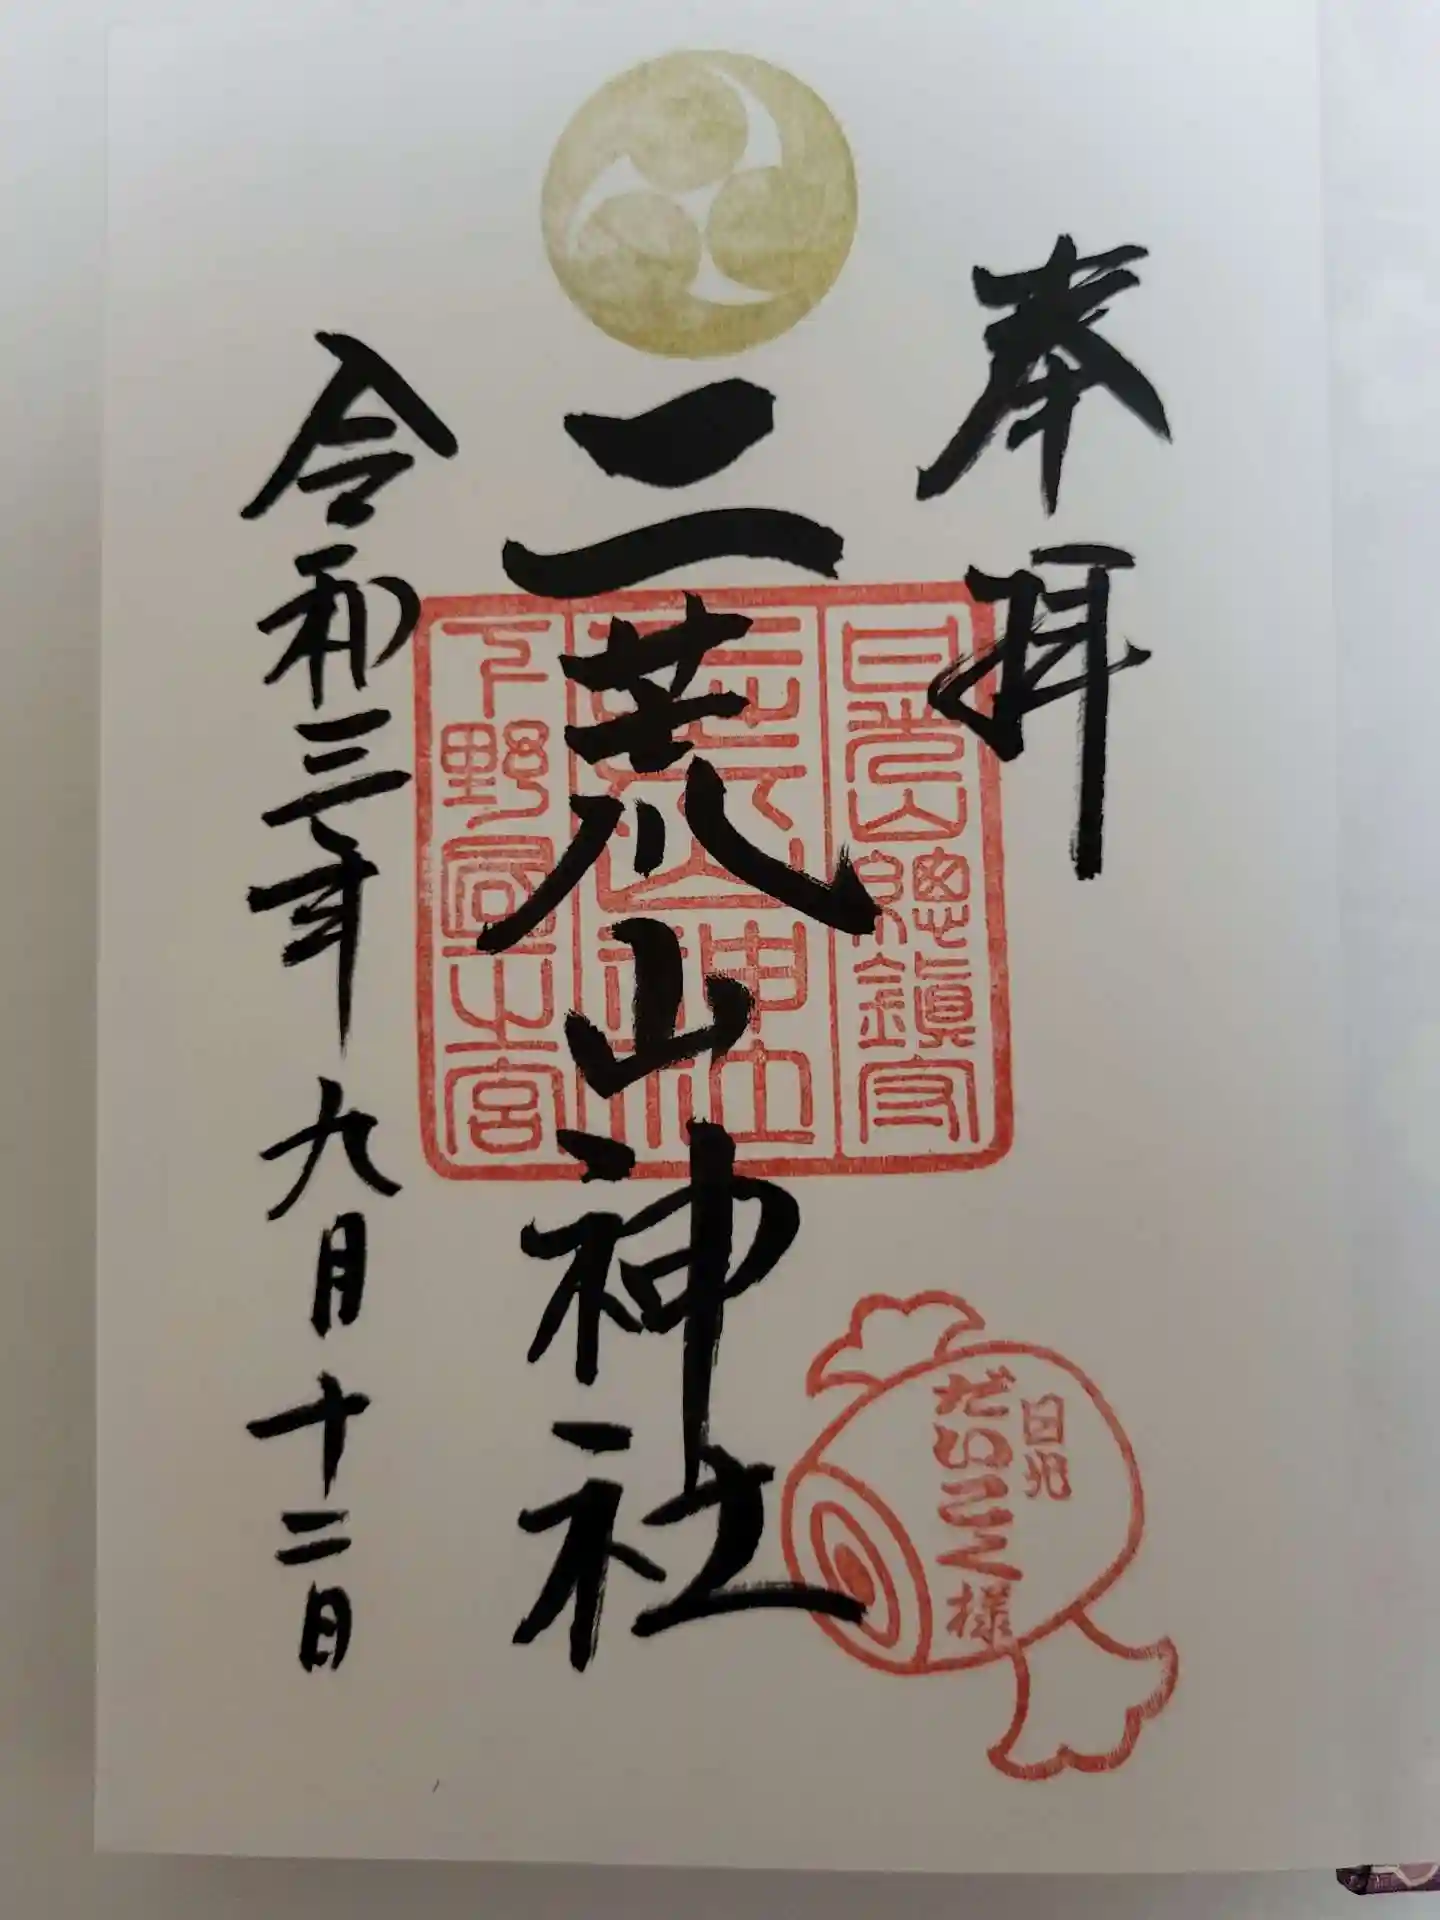 奉拝
日光山總鎮守
二荒山神社
志荒山神社
下野國一之宮
令和三年九月十二日
日光
だいこく様